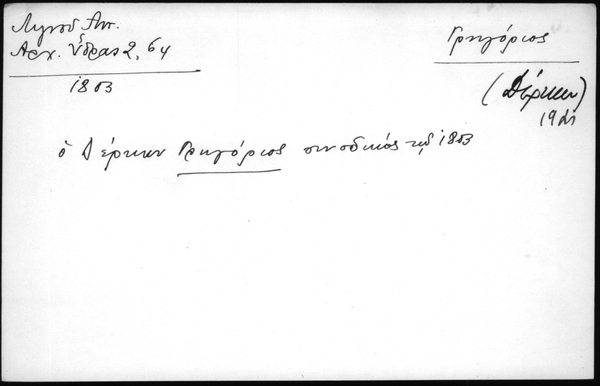 Λιγνοῦ Αντ.
Αρχ. Ὕδρας 2, 64
1803
Γρηγόριος
(Δέρκων)
ὁ Δέρκων Γρηγόριος συνοδικός τῷ 1803